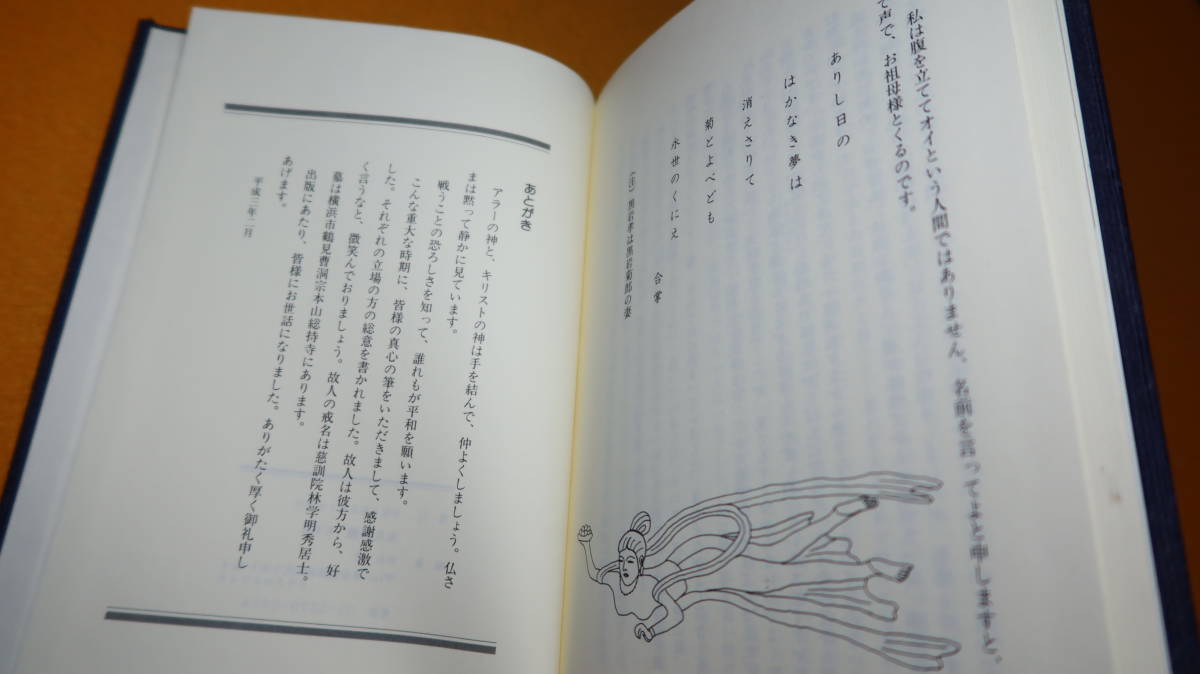 私は腹を立ててオイという人間ではありません。名前を言ってよと申しますと、
て声で、お祖母様とくるのです。
ありし日の
はかなき夢は
消えさりて
菊とよべども
永世のくにえ
合掌
(注) 黒岩孝は黒岩菊郎の妻
あとがき
アラーの神と、キリストの神は手を結んで、仲よくしましょう。仏さ
まは黙って静かに見ています。
戦うことの恐ろしさを知って、誰れもが平和を願います。
こんな重大な時期に、皆様の真心の筆をいただきまして、感謝感激で
した。それぞれの立場の方の総意を書かれました。故人は彼方から、好
く言うなと、微笑んでおりましょう。故人の戒名は慈訓院林学明秀居士。
墓は横浜市鶴見曹洞宗本山総持寺にあります。
出版にあたり、皆様にお世話になりました。ありがたく厚く御礼申し
あげます。
平成三年二月